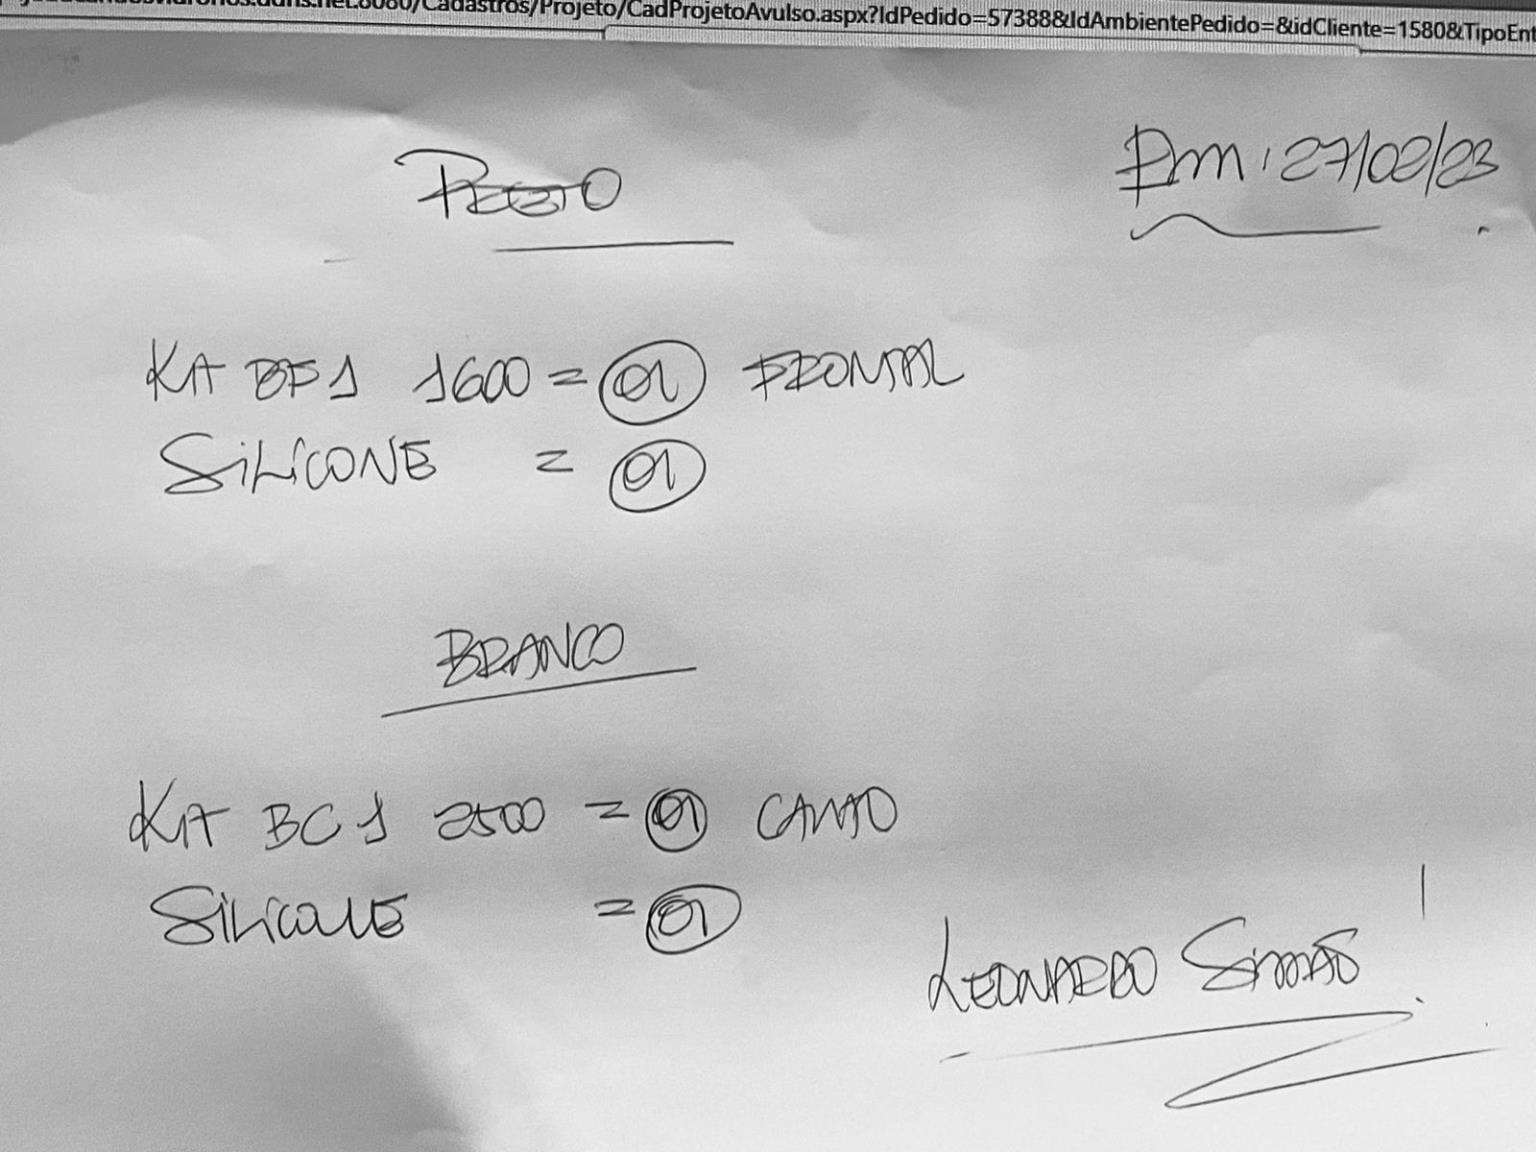 .ddns.net:8080/Cadastros/Projeto/CadProjetoAvulso.aspx?IdPedido=57388&IdAmbientePedido=&idCliente=1580&TipoEnt
PRETO
Em: 27/02/23
Kit BF1 1600 = 01 FRONTAL
SILICONE = 01
BRANCO
Kit BC1 2500 = 01 CANTO
SILICONE = 01
LEONARDO SIMÃO!